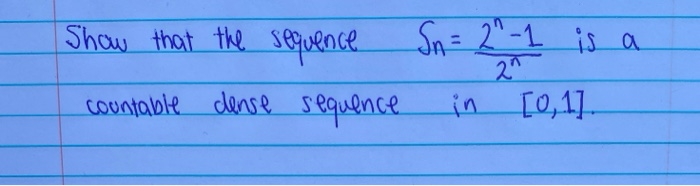 Show that the sequence Sn = 2^n-1 / 2^n is a
countable dense sequence in [0,1].